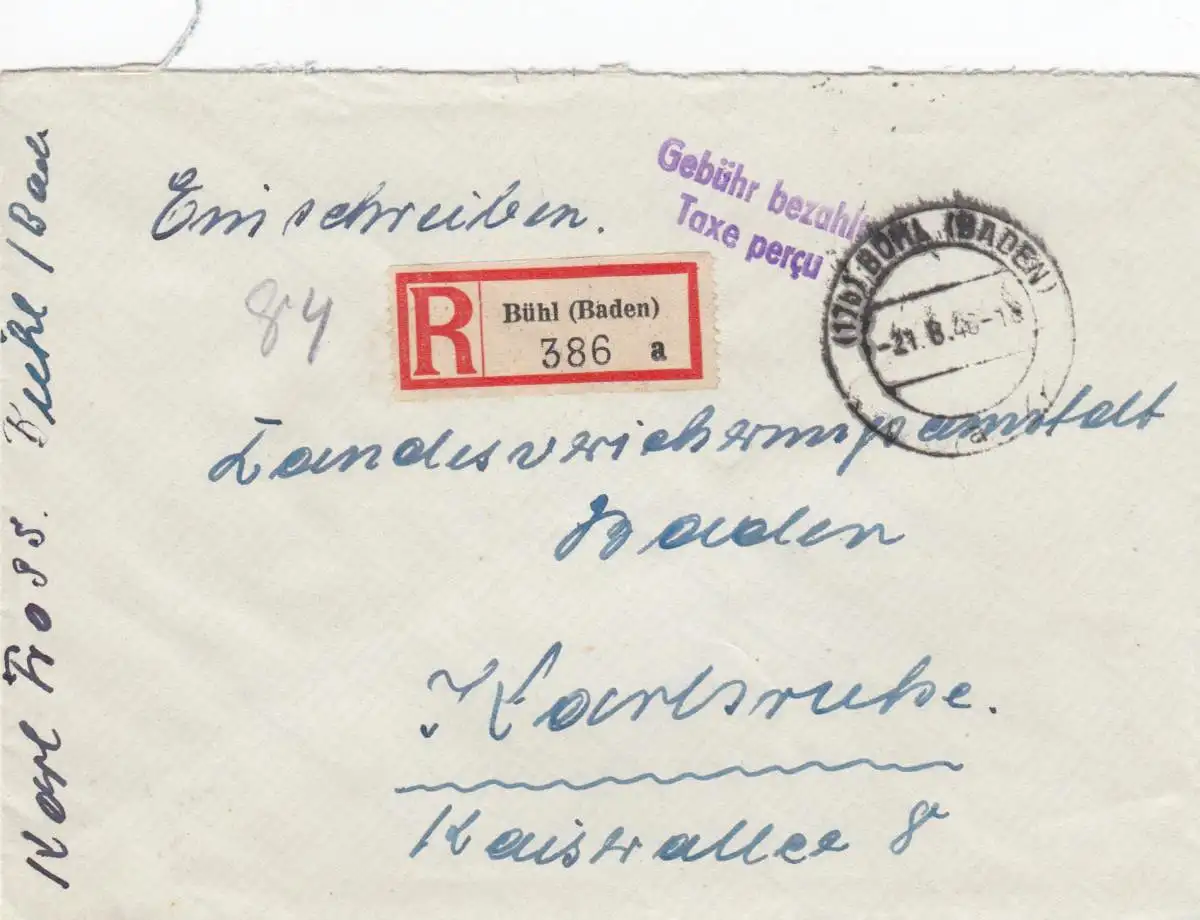 Einschreiben.
Gebühr bezahlt
Taxe perçu
84
R
Bühl (Baden)
386 a
(17b) BÜHL (BADEN)
-21.6.48-18
a
Landesversicherungsanstalt
Baden
Karlsruhe.
Kaiserallee 8
Karl Bühl / Baden